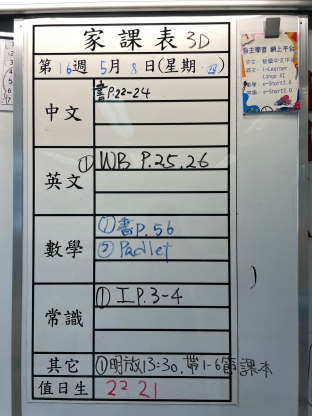 家課表 3D
第16週 5月8日(星期四)
中文
書P.22-24
英文
① WB P.25,26
數學
①書P.56
② Padlet
常識
①工P.3-4
其它
①明放13:30,帶1-6節課本
值日生
22 21
自主學習 網上平台
i-Learner
e-Smart2.0
e-Smart2.0